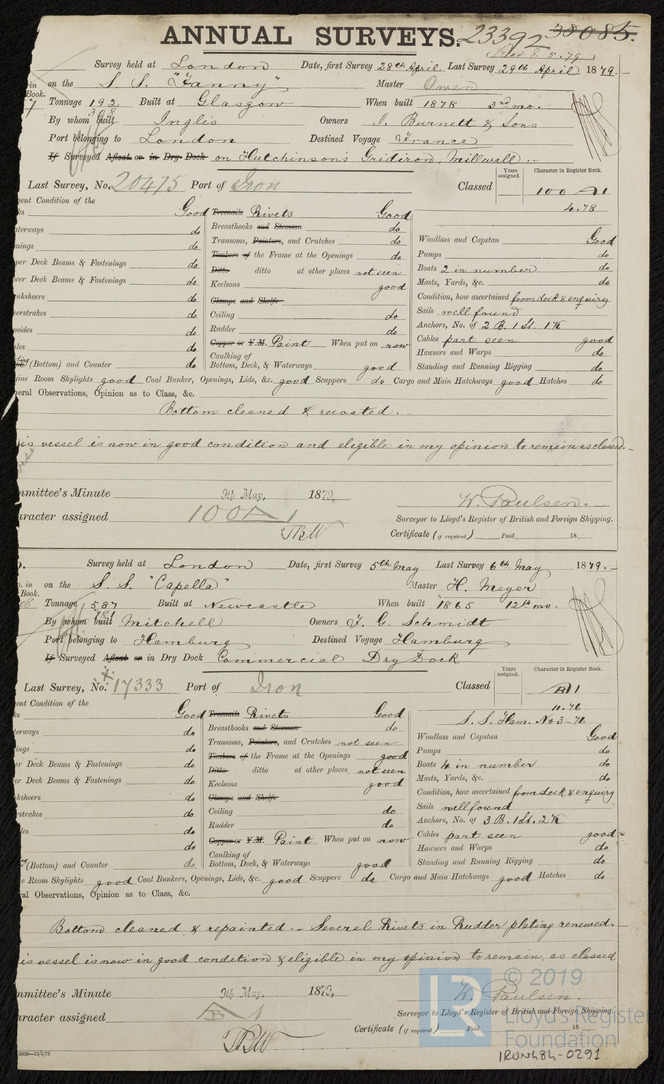 ANNUAL SURVEYS. 23392 38085.
Survey held at London Date, first Survey 28th April Last Survey 29th April 1879.-
on the S. S. "Fanny" Master Owen
Book.
Tonnage 192 Built at Glasgow When built 1878 3rd mo.
By whom built Inglis Owners I. Burnett & Sons
Port belonging to London Destined Voyage France
If Surveyed Afloat or in Dry Dock on Hutchinson's Gridiron, Millwall.-
Years assigned. Character in Register Book.
Last Survey, No. 20475 Port of Iron Classed 100 A1
4.78
ent Condition of the Good Treenails Rivets Good
terways do Breasthooks and Stemson do Windlass and Capstan Good
nings do Transoms, Pointers, and Crutches do Pumps do
per Deck Beams & Fastenings do Timbers of the Frame at the Openings do Boats 2 in number do
wer Deck Beams & Fastenings do Ditto ditto at other places not seen Masts, Yards, &c. do
nksheers do Keelsons good Condition, how ascertained from deck & enquiry
erstrakes do Clamps and Shelfs Sails well found
psides do Ceiling do Anchors, No. of 2 B. 1 St. 1 K
les do Rudder do Cables part seen good
do Copper or Y.M. Paint When put on now Hawsers and Warps do
(Bottom) and Counter do Caulking of Bottom, Deck, & Waterways good Standing and Running Rigging do
ine Room Skylights good Coal Bunker, Openings, Lids, &c. good Scuppers do Cargo and Main Hatchways good Hatches do
eral Observations, Opinion as to Class, &c.
Bottom cleaned & recoated.-
is vessel is now in good condition and eligible in my opinion to remain as classed.-
mmittee's Minute 9th May, 1879,
W. Paulsen.-
aracter assigned 100 A 1 Surveyor to Lloyd's Register of British and Foreign Shipping.
Certificate (if required) Paid 18
Survey held at London Date, first Survey 5th May Last Survey 6th May 1879.-
o. in on the S. S. "Capella" Master H. Meyer
Book.
Tonnage 587 Built at Newcastle When built 1865 12th mo.
781
By whom built Mitchell Owners F. G. Schmidt
Port belonging to Hamburg Destined Voyage Hamburg
If Surveyed Afloat or in Dry Dock Commercial Dry Dock
Years assigned. Character in Register Book.
Last Survey, No. 17333 Port of Iron Classed A1
11.76
S. S. Ham. No 3-76
ent Condition of the Good Treenails Rivets Good
terways do Breasthooks and Stemson do Windlass and Capstan Good
ings do Transoms, Pointers, and Crutches not seen Pumps do
er Deck Beams & Fastenings do Timbers of the Frame at the Openings good Boats 4 in number do
er Deck Beams & Fastenings do Ditto ditto at other places not seen Masts, Yards, &c. do
ksheers do Keelsons good Condition, how ascertained from deck & enquiry
strakes do Clamps and Shelfs Sails well found
ides do Ceiling do Anchors, No. of 3 B. 1 St. 2 K
es do Rudder do Cables part seen good-
do Copper or Y.M. Paint When put on now Hawsers and Warps do
(Bottom) and Counter do Caulking of Bottom, Deck, & Waterways good Standing and Running Rigging do
e Room Skylights good Coal Bunkers, Openings, Lids, &c. good Scuppers do Cargo and Main Hatchways good Hatches do
ral Observations, Opinion as to Class, &c.
Bottom cleaned & repainted.- Several Rivets in Rudder plating renewed.-
is vessel is now in good condition & eligible in my opinion to remain, as classed
mmittee's Minute 9th May, 1879,
W. Paulsen.
aracter assigned Surveyor to Lloyd's Register of British and Foreign Shipping.
Certificate (if required) Paid 18
LR © 2019
Lloyd's Register
Foundation
IRON484-0291